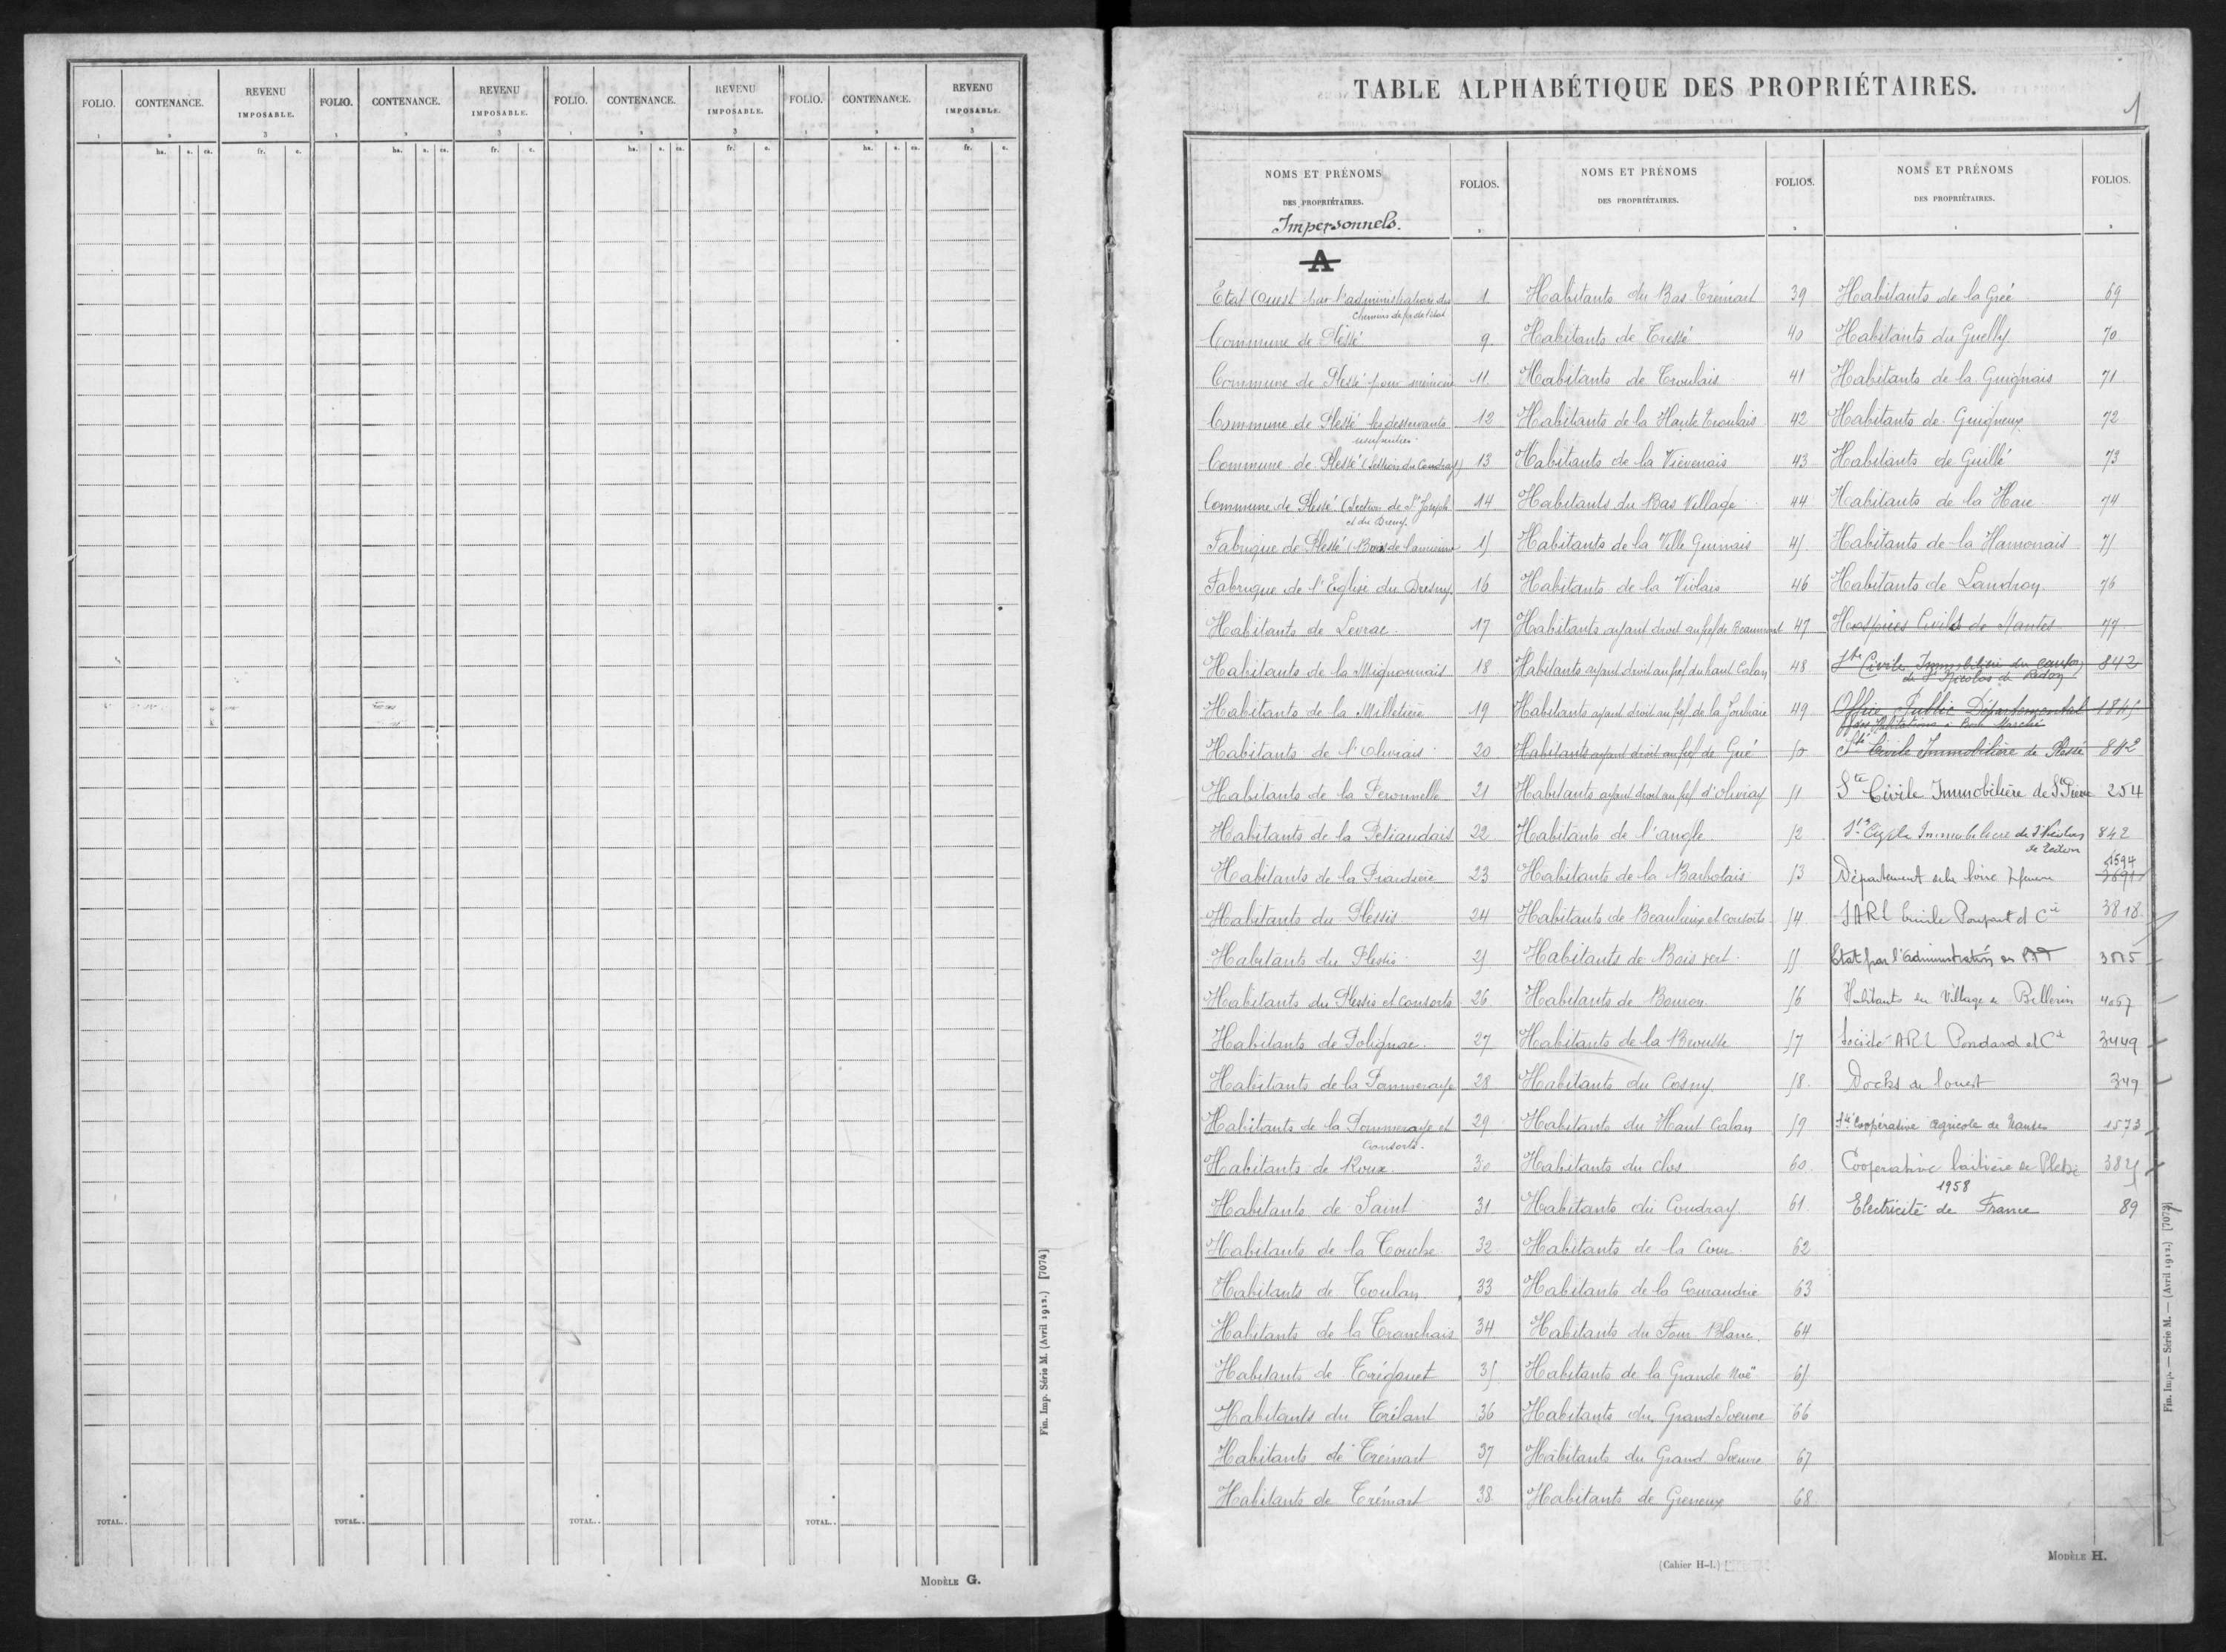 FOLIO. CONTENANCE. REVENU IMPOSABLE. FOLIO. CONTENANCE. REVENU IMPOSABLE. FOLIO. CONTENANCE. REVENU IMPOSABLE. FOLIO. CONTENANCE. REVENU IMPOSABLE.
1 2 3 1 2 3 1 2 3 1 2 3
ha. a. ca. fr. c. ha. a. ca. fr. c. ha. a. ca. fr. c. ha. a. ca. fr. c.
TOTAL.. TOTAL.. TOTAL.. TOTAL..
MODÈLE G.
Fin. Imp. Série M. (Avril 1912.) [7074]
TABLE ALPHABÉTIQUE DES PROPRIÉTAIRES.
1
NOMS ET PRÉNOMS DES PROPRIÉTAIRES. FOLIOS.
Impersonnels.
A
Etat (Ouest par l'administration des 1
Chemins de fer de l'état
Commune de Plessé 9
Commune de Plessé pour mémoire 11
Commune de Plessé les desservants 12
usufruitiers
Commune de Plessé (Section du Coudray) 13
Commune de Plessé (Section de St Joseph 14
et du Dresny
Fabrique de Plessé 15
Fabrique de l'Eglise du Dresny 16
Habitants de Levrac 17
Habitants de la Mignonnais 18
Habitants de la Milletière 19
Habitants de l'Olivrais 20
Habitants de la Peronnelle 21
Habitants de la Petiaudais 22
Habitants de la Piardière 23
Habitants du Plessis 24
Habitants du Plessis 25
Habitants du Plessis et consorts 26
Habitants de Polignac 27
Habitants de la Pommeraye 28
Habitants de la Pommeraye et 29
Consorts
Habitants de Roux 30
Habitants de Saint 31
Habitants de la Touche 32
Habitants de Toulan 33
Habitants de la Tranchais 34
Habitants de Trégouet 35
Habitants du Trélant 36
Habitants de Trémart 37
Habitants de Trémart 38
NOMS ET PRÉNOMS DES PROPRIÉTAIRES. FOLIOS.
Habitants du Bas Trémart 39
Habitants de Tressé 40
Habitants de Troulais 41
Habitants de la Haute Troulais 42
Habitants de la Vievenais 43
Habitants du Bas Village 44
Habitants de la Ville Guenais 45
Habitants de la Violais 46
Habitants ayant droit au fief de Beaumont 47
Habitants ayant droit au fief du haut Calan 48
Habitants ayant droit au fief de la Joubraie 49
Habitants ayant droit au fief de Gué 50
Habitants ayant droit au fief d'olivray 51
Habitants de l'angle 52
Habitants de la Barbotais 53
Habitants de Beaulieux et consorts 54
Habitants de Bois vert 55
Habitants de Bouvon 56
Habitants de la Brousse 57
Habitants du Cosny 58
Habitants du Haut Calan 59
Habitants du clos 60
Habitants du Coudray 61
Habitants de la Cour 62
Habitants de la Couraudrie 63
Habitants du Four Blanc 64
Habitants de la Grande Noë 65
Habitants du Grand 66
Habitants du Grand 67
Habitants de Greneux 68
NOMS ET PRÉNOMS DES PROPRIÉTAIRES. FOLIOS.
Habitants de la Grée 69
Habitants du Guelly 70
Habitants de la Guignais 71
Habitants de Guigneux 72
Habitants de Guillé 73
Habitants de la Haie 74
Habitants de la Hamonais 75
Habitants de Landron 76
Hospices Civils de Nantes 77
Sté Civile Immobilière du canton 842
de St Nicolas de Redon
Office Public Départemental 1845
des Habitations à Bon Marché
Sté Civile Immobilière de Plessé 842
Sté Civile Immobilière de St Pierre 254
Sté Civile Immobilière de St Nicolas 842
de Redon
Département de la Loire Inférieure 1594
3691
SARL Emile Poupart et Cie 3818
Etat par l'administration des PTT 3515
Habitants du Village de Billerin 4067
Société ARL Pondard et Cie 3449
Docks de l'ouest 349
Sté Coopérative agricole de Nantes 1573
Coopérative laitière de Plessé 3825
1958
Electricité de France 89
(Cahier H-1.)
MODÈLE H.
Fin. Imp. — Série M. — (Avril 1912.) [7073]